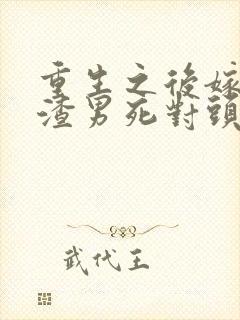 重生之後嫁
渣男死對頭
武代王